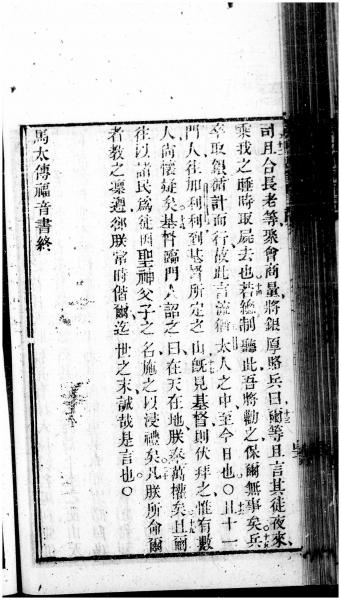 司且合長老等聚會商量將銀厚賂兵曰爾等且言其徒夜來
乘我之睡時取屍去也若總制聽此吾將勸之保爾無事矣兵
卒取銀循計而行故此言流猶太人之中至今日也〇且十一
門人往加利利到基督所定之山旣見基督則伏拜之惟有數
人尙懷疑矣基督臨門人詔之曰在天在地朕奉萬權矣且爾
往以諸民爲徒因聖神父子之名施之以浸禮矣凡朕所命爾
者教之凜遵朕常時偕爾迄世之末誠哉是言也〇
馬太傳福音書終